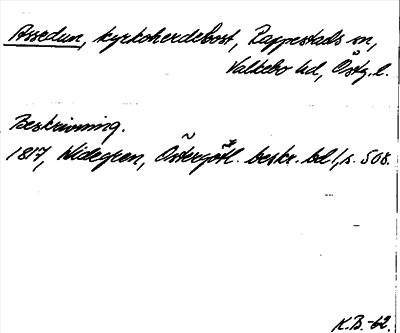 Assedun, kyrkoherdebost, Rappestads sn,
Valkebo hd, Östg. l.
Beskrivning.
1817, Widegren, Östergötl. beskr. bd 1, s. 508.
K.B.-62.